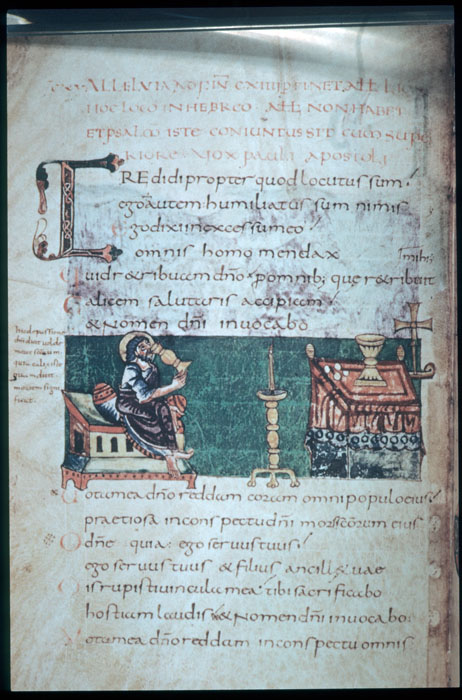 ALLELUIA
HOC LOCO IN HEBREO ALL NON HABET
ET PSALM ISTE CONIUNTUS SIT CUM SUPE
RIORE VOX PAULI APOSTOLI
CREdidi propter quod locutus sum
ego autem humiliatus sum nimis
Ego dixi in excessu meo
omnis homo mendax
Quid retribuam dño pro omnib; que retribuit mihi;
Calicem salutaris accipiam
& nomen dñi inuocabo
Uota mea dño reddam coram omni populo eius
praetiosa in conspectu dñi mors scorum eius
O dñe quia ego seruus tuus
ego seruus tuus & filius ancillae tuae
Disrupisti uincula mea tibi sacrificabo
hostiam laudis & nomen dñi inuocabo
Uota mea dño reddam in conspectu omnis